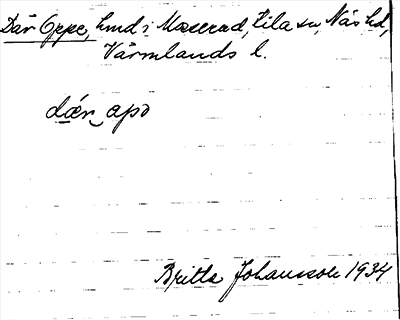 Där Oppe, hmd i Masserad, Lila sn, Näs hd,
Värmlands l.
dær‿ apɔ
Britta Johansson 1934